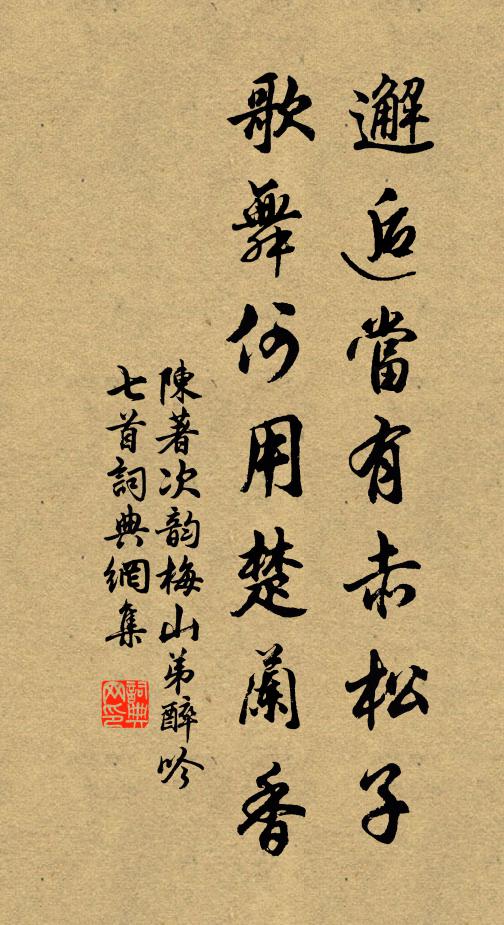 邂逅當有赤松子
歌舞何用楚蘭香
陳著次韵梅山弟醉吟
七首詞典網集
詞典网印